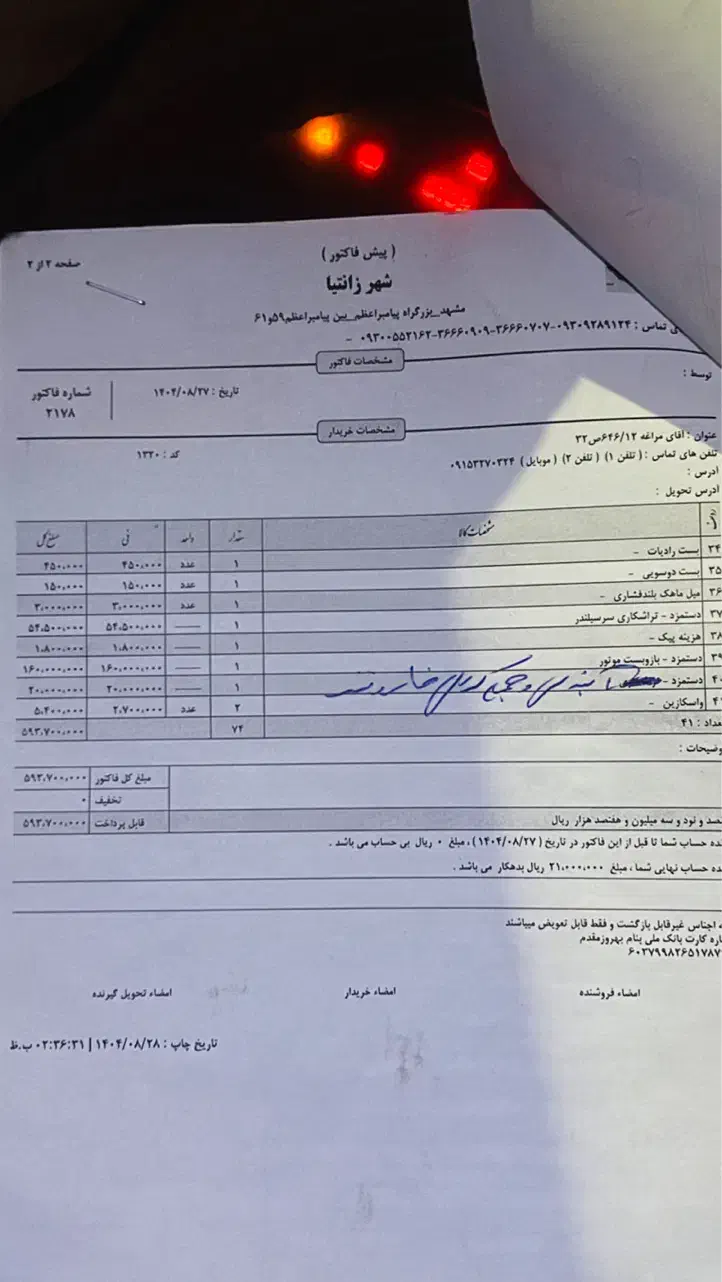 ( پیش فاکتور )
صفحه ۲ از ۲
شهر زانتیا
مشهد_بزرگراه پیامبراعظم_بین پیامبراعظم۵۹و۶۱
تماس : ۰۹۳۰۹۲۸۹۱۲۴-۳۶۶۶۰۷۰۷-۳۶۶۶۰۹۰۹-۰۹۳۰۰۵۵۲۱۶۲ -
مشخصات فاکتور
توسط :
تاریخ : ۱۴۰۴/۰۸/۲۷
شماره فاکتور
۲۱۷۸
مشخصات خریدار
عنوان : آقای مراغه ۶۴۶/۱۲ص۳۲
تلفن های تماس : ( تلفن ۱) ( تلفن ۲) ( موبایل ) ۰۹۱۵۳۲۷۰۳۲۴
کد : ۱۳۲۰
ادرس :
ادرس تحویل :
ردیف مشخصات کالا مقدار واحد فی مبلغ کل
۳۴ بست رادیات - ۱ عدد ۴۵۰،۰۰۰ ۴۵۰،۰۰۰
۳۵ بست دوسویی - ۱ عدد ۱۵۰،۰۰۰ ۱۵۰،۰۰۰
۳۶ میل ماهک بلندفشاری - ۱ عدد ۳،۰۰۰،۰۰۰ ۳،۰۰۰،۰۰۰
۳۷ دستمزد - تراشکاری سرسیلندر ۱ ۵۴،۵۰۰،۰۰۰ ۵۴،۵۰۰،۰۰۰
۳۸ هزینه پیک - ۱ ۱،۸۰۰،۰۰۰ ۱،۸۰۰،۰۰۰
۳۹ دستمزد - بازوبست موتور ۱ ۱۶۰،۰۰۰،۰۰۰ ۱۶۰،۰۰۰،۰۰۰
۴۰ دستمزد - ۱ ۲۰،۰۰۰،۰۰۰ ۲۰،۰۰۰،۰۰۰
واسکازین - ۲ عدد ۲،۷۰۰،۰۰۰ ۵،۴۰۰،۰۰۰
۴۱ ۷۴ ۵۹۳،۷۰۰،۰۰۰
مبلغ کل فاکتور ۵۹۳،۷۰۰،۰۰۰
تخفیف ۰
قابل پرداخت ۵۹۳،۷۰۰،۰۰۰
نود و سه میلیون و هفتصد هزار ریال
حساب شما تا قبل از این فاکتور در تاریخ (۱۴۰۴/۰۸/۲۷) ، مبلغ ۰ ریال بی حساب می باشد .
حساب نهایی شما ، مبلغ ۲۱،۰۰۰،۰۰۰ ریال بدهکار می باشد .
اجناس غیرقابل بازگشت و فقط قابل تعویض میباشند
کارت بانک ملی بنام بهروزمقدم
۶۰۳۷۹۹۸۲۶۵۱۷۸۷
امضاء فروشنده امضاء خریدار امضاء تحویل گیرنده
تاریخ چاپ : ۱۴۰۴/۰۸/۲۸ | ۰۲:۳۶:۳۱ ب.ظ